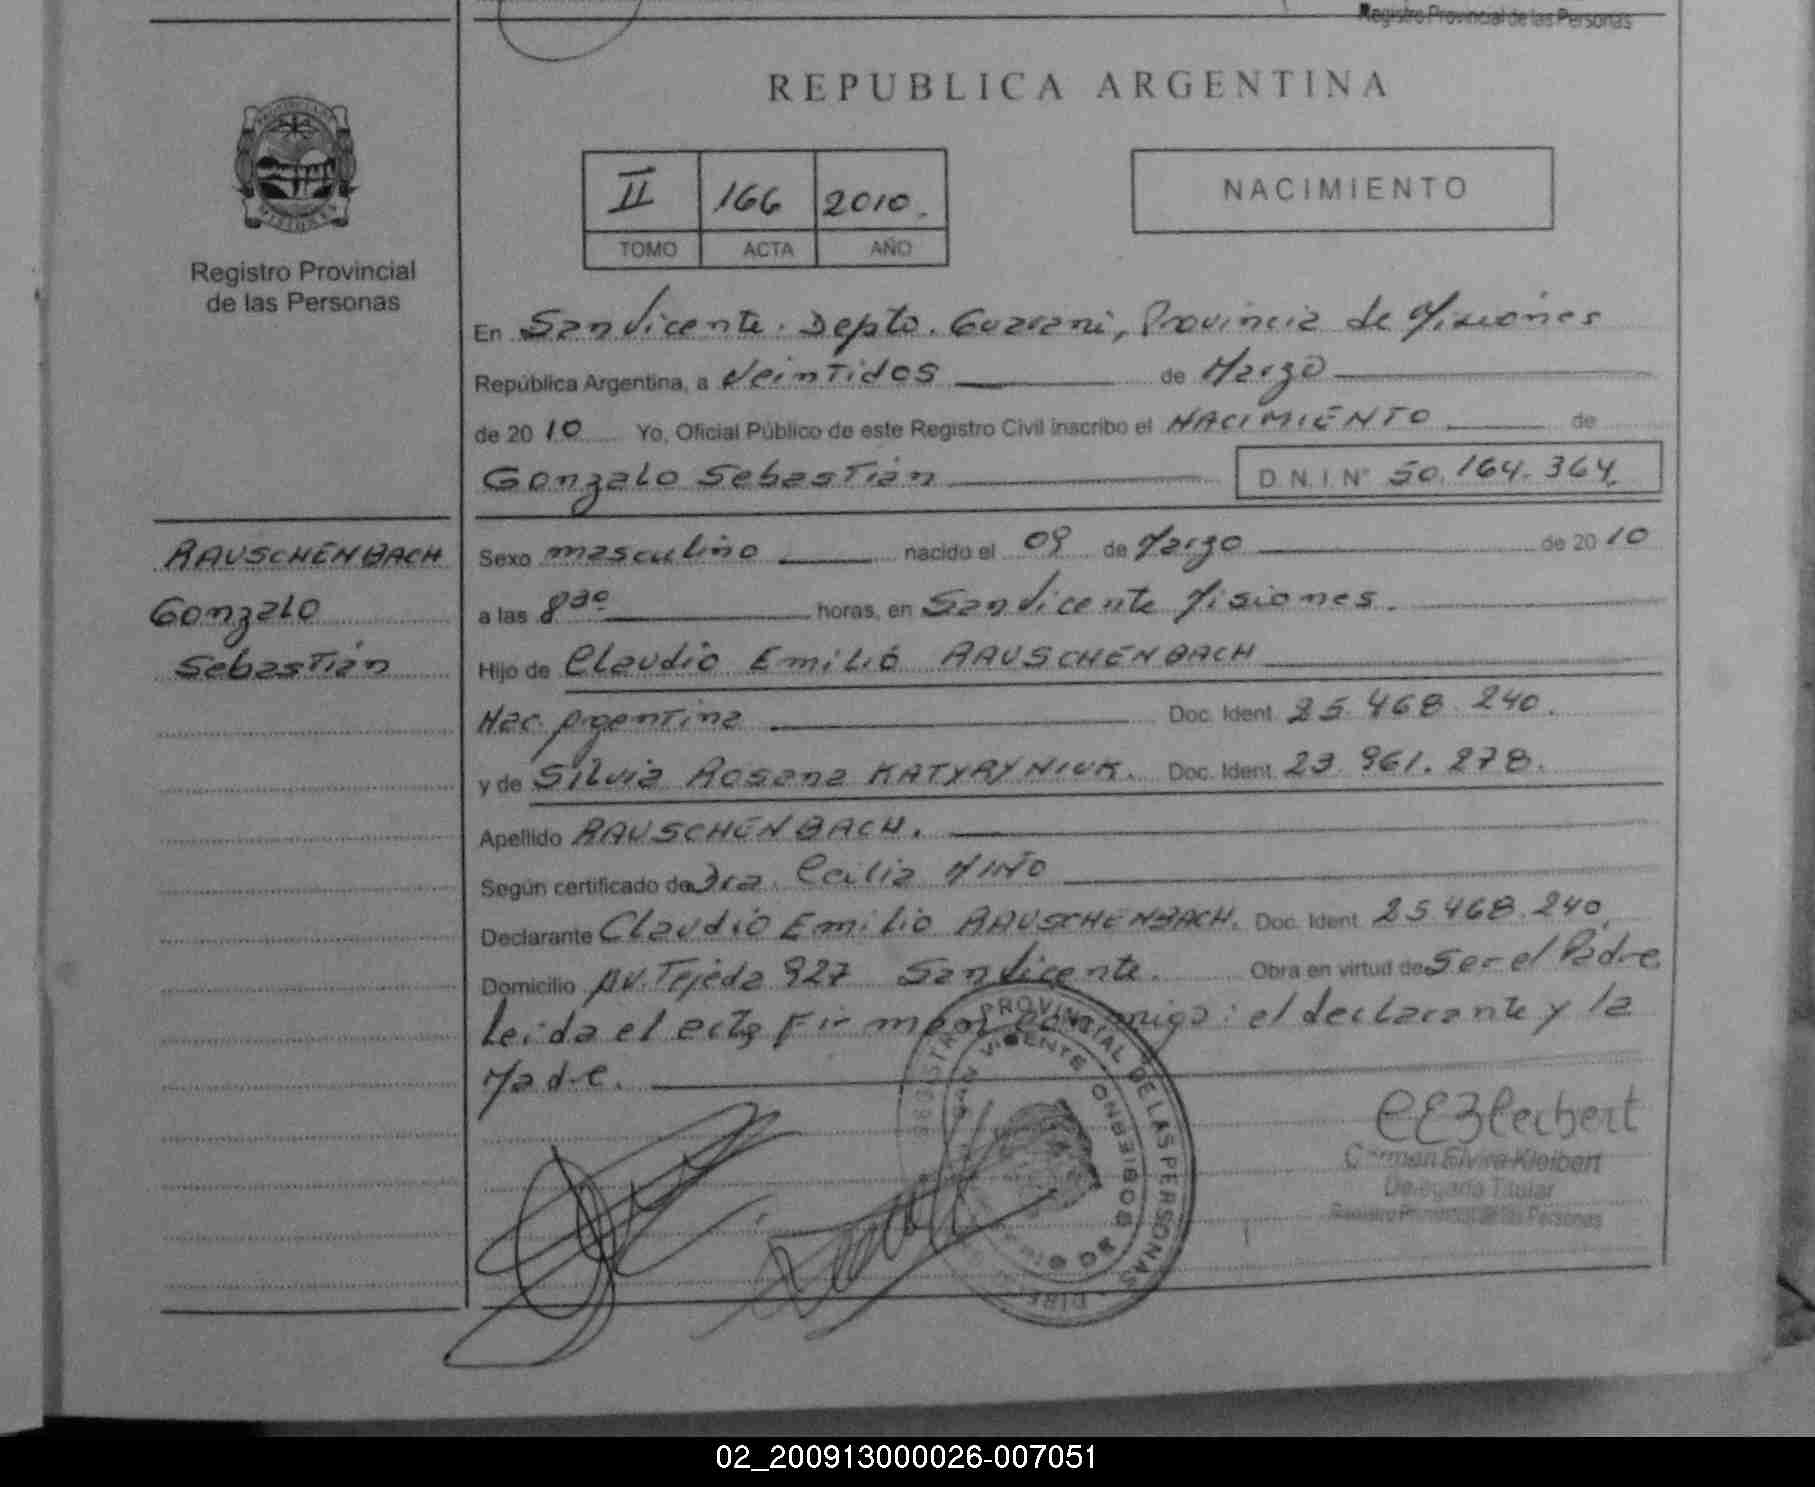 Registro Provincial de las Personas
REPUBLICA ARGENTINA
II 166 2010.
TOMO ACTA AÑO
NACIMIENTO
Registro Provincial
de las Personas
En San Vicente. Depto. Guaraní, Provincia de Misiones
República Argentina, a Veintidos de Marzo
de 2010 Yo, Oficial Público de este Registro Civil inscribo el NACIMIENTO de
Gonzalo Sebastián D.N.I. N° 50.164.364.
RAUSCHENBACH
Gonzalo
Sebastián
Sexo masculino nacido el 09 de Marzo de 2010
a las 8³⁰ horas, en San Vicente Misiones.
Hijo de Claudio Emilio RAUSCHENBACH
Nac. Argentina Doc. Ident. 25.468.240.
y de Silvia Rosana KATYRYNIUK. Doc. Ident. 23.961.278.
Apellido RAUSCHENBACH.
Según certificado de Dra. Cecilia Miño
Declarante Claudio Emilio RAUSCHENBACH. Doc. Ident. 25.468.240.
Domicilio AV. Tejeda 927 San Vicente. Obra en virtud de Ser el Padre
Leida el acta Firman conmigo: el declarante y la
Madre.
REGISTRO PROVINCIAL DE LAS PERSONAS
SAN VICENTE
Carmen Elvira Kleibert
Delegada Titular
Registro Provincial de las Personas
02_200913000026-007051